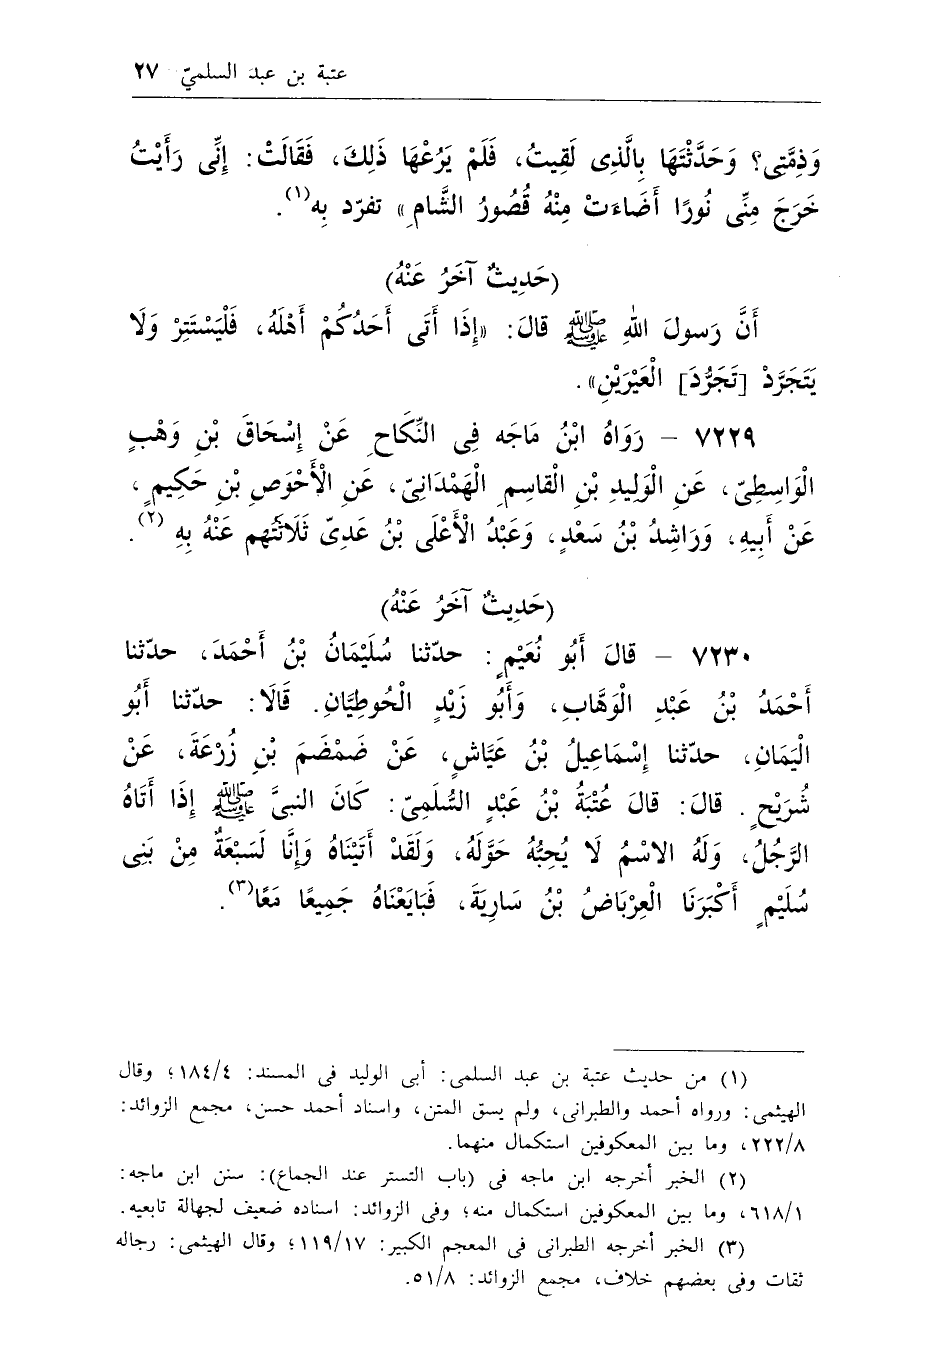 عتبة بن عبد السلميّ ٢٧
وَذِمَّتِى؟ وَحَدَّثْتَهَا بِالَّذِى لَقِيتُ، فَلَمْ يَرُعْهَا ذَلِكَ، فَقَالَتْ: إِنِّى رَأَيْتُ
خَرَجَ مِنِّى نُورًا أَضَاءَتْ مِنْهُ قُصُورُ الشَّامِ» تفرّد بِه(١).
(حَدِيثٌ آخَرُ عَنْهُ)
أَنَّ رَسولَ اللهِ ﷺ قالَ: «إِذَا أَتَى أَحَدُكُمْ أَهْلَهُ، فَلْيَسْتَتِرْ وَلَا
يَتَجَرَّدْ [تَجَرُّدَ] الْعَيْرَيْنِ».
٧٢٢٩ – رَوَاهُ ابْنُ مَاجَه فِى النِّكَاحِ عَنْ إِسْحَاقَ بْنِ وَهْبٍ
الْوَاسِطِىّ، عَنِ الْوَلِيدِ بْنِ الْقَاسِمِ الْهَمْدَانِىّ، عَنِ الْأَحْوَصِ بْنِ حَكِيمٍ،
عَنْ أَبِيهِ، وَرَاشِدُ بْنُ سَعْدٍ، وَعَبْدُ الْأَعْلَى بْنُ عَدِىّ ثَلَاثَتُهم عَنْهُ بِهِ (٢).
(حَدِيثٌ آخَرُ عَنْهُ)
٧٢٣٠ – قالَ أَبُو نُعَيْمٍ: حدّثنا سُلَيْمَانُ بْنُ أَحْمَدَ، حدّثنا
أَحْمَدُ بْنُ عَبْدِ الْوَهَّابِ، وَأَبُو زَيْدٍ الْحُوطِيَّانِ. قَالَا: حدّثنا أَبُو
الْيَمَانِ، حدّثنا إِسْمَاعِيلُ بْنُ عَيَّاشٍ، عَنْ ضَمْضَمَ بْنِ زُرْعَةَ، عَنْ
شُرَيْحٍ. قالَ: قالَ عُتْبَةُ بْنُ عَبْدٍ السُّلَمِىّ: كَانَ النبىَّ ﷺ إِذَا أَتَاهُ
الرَّجُلُ، وَلَهُ الاسْمُ لَا يُحِبُّهُ حَوَّلَهُ، وَلَقَدْ أَتَيْنَاهُ وَإِنَّا لَسَبْعَةٌ مِنْ بَنِى
سُلَيْمٍ أَكْبَرَنَا الْعِرْبَاضُ بْنُ سَارِيَةَ، فَبَايَعْنَاهُ جَمِيعًا مَعًا(٣).
(١) من حديث عتبة بن عبد السلمى: أبى الوليد فى المسند: ١٨٤/٤؛ وقال
الهيثمى: ورواه أحمد والطبرانى، ولم يسق المتن، واسناد أحمد حسن، مجمع الزوائد:
٢٢٢/٨، وما بين المعكوفين استكمال منهما.
(٢) الخبر أخرجه ابن ماجه فى (باب التستر عند الجماع): سنن ابن ماجه:
٦١٨/١، وما بين المعكوفين استكمال منه؛ وفى الزوائد: اسناده ضعيف لجهالة تابعيه.
(٣) الخبر أخرجه الطبرانى فى المعجم الكبير: ١١٩/١٧؛ وقال الهيثمى: رجاله
ثقات وفى بعضهم خلاف، مجمع الزوائد: ٥١/٨.